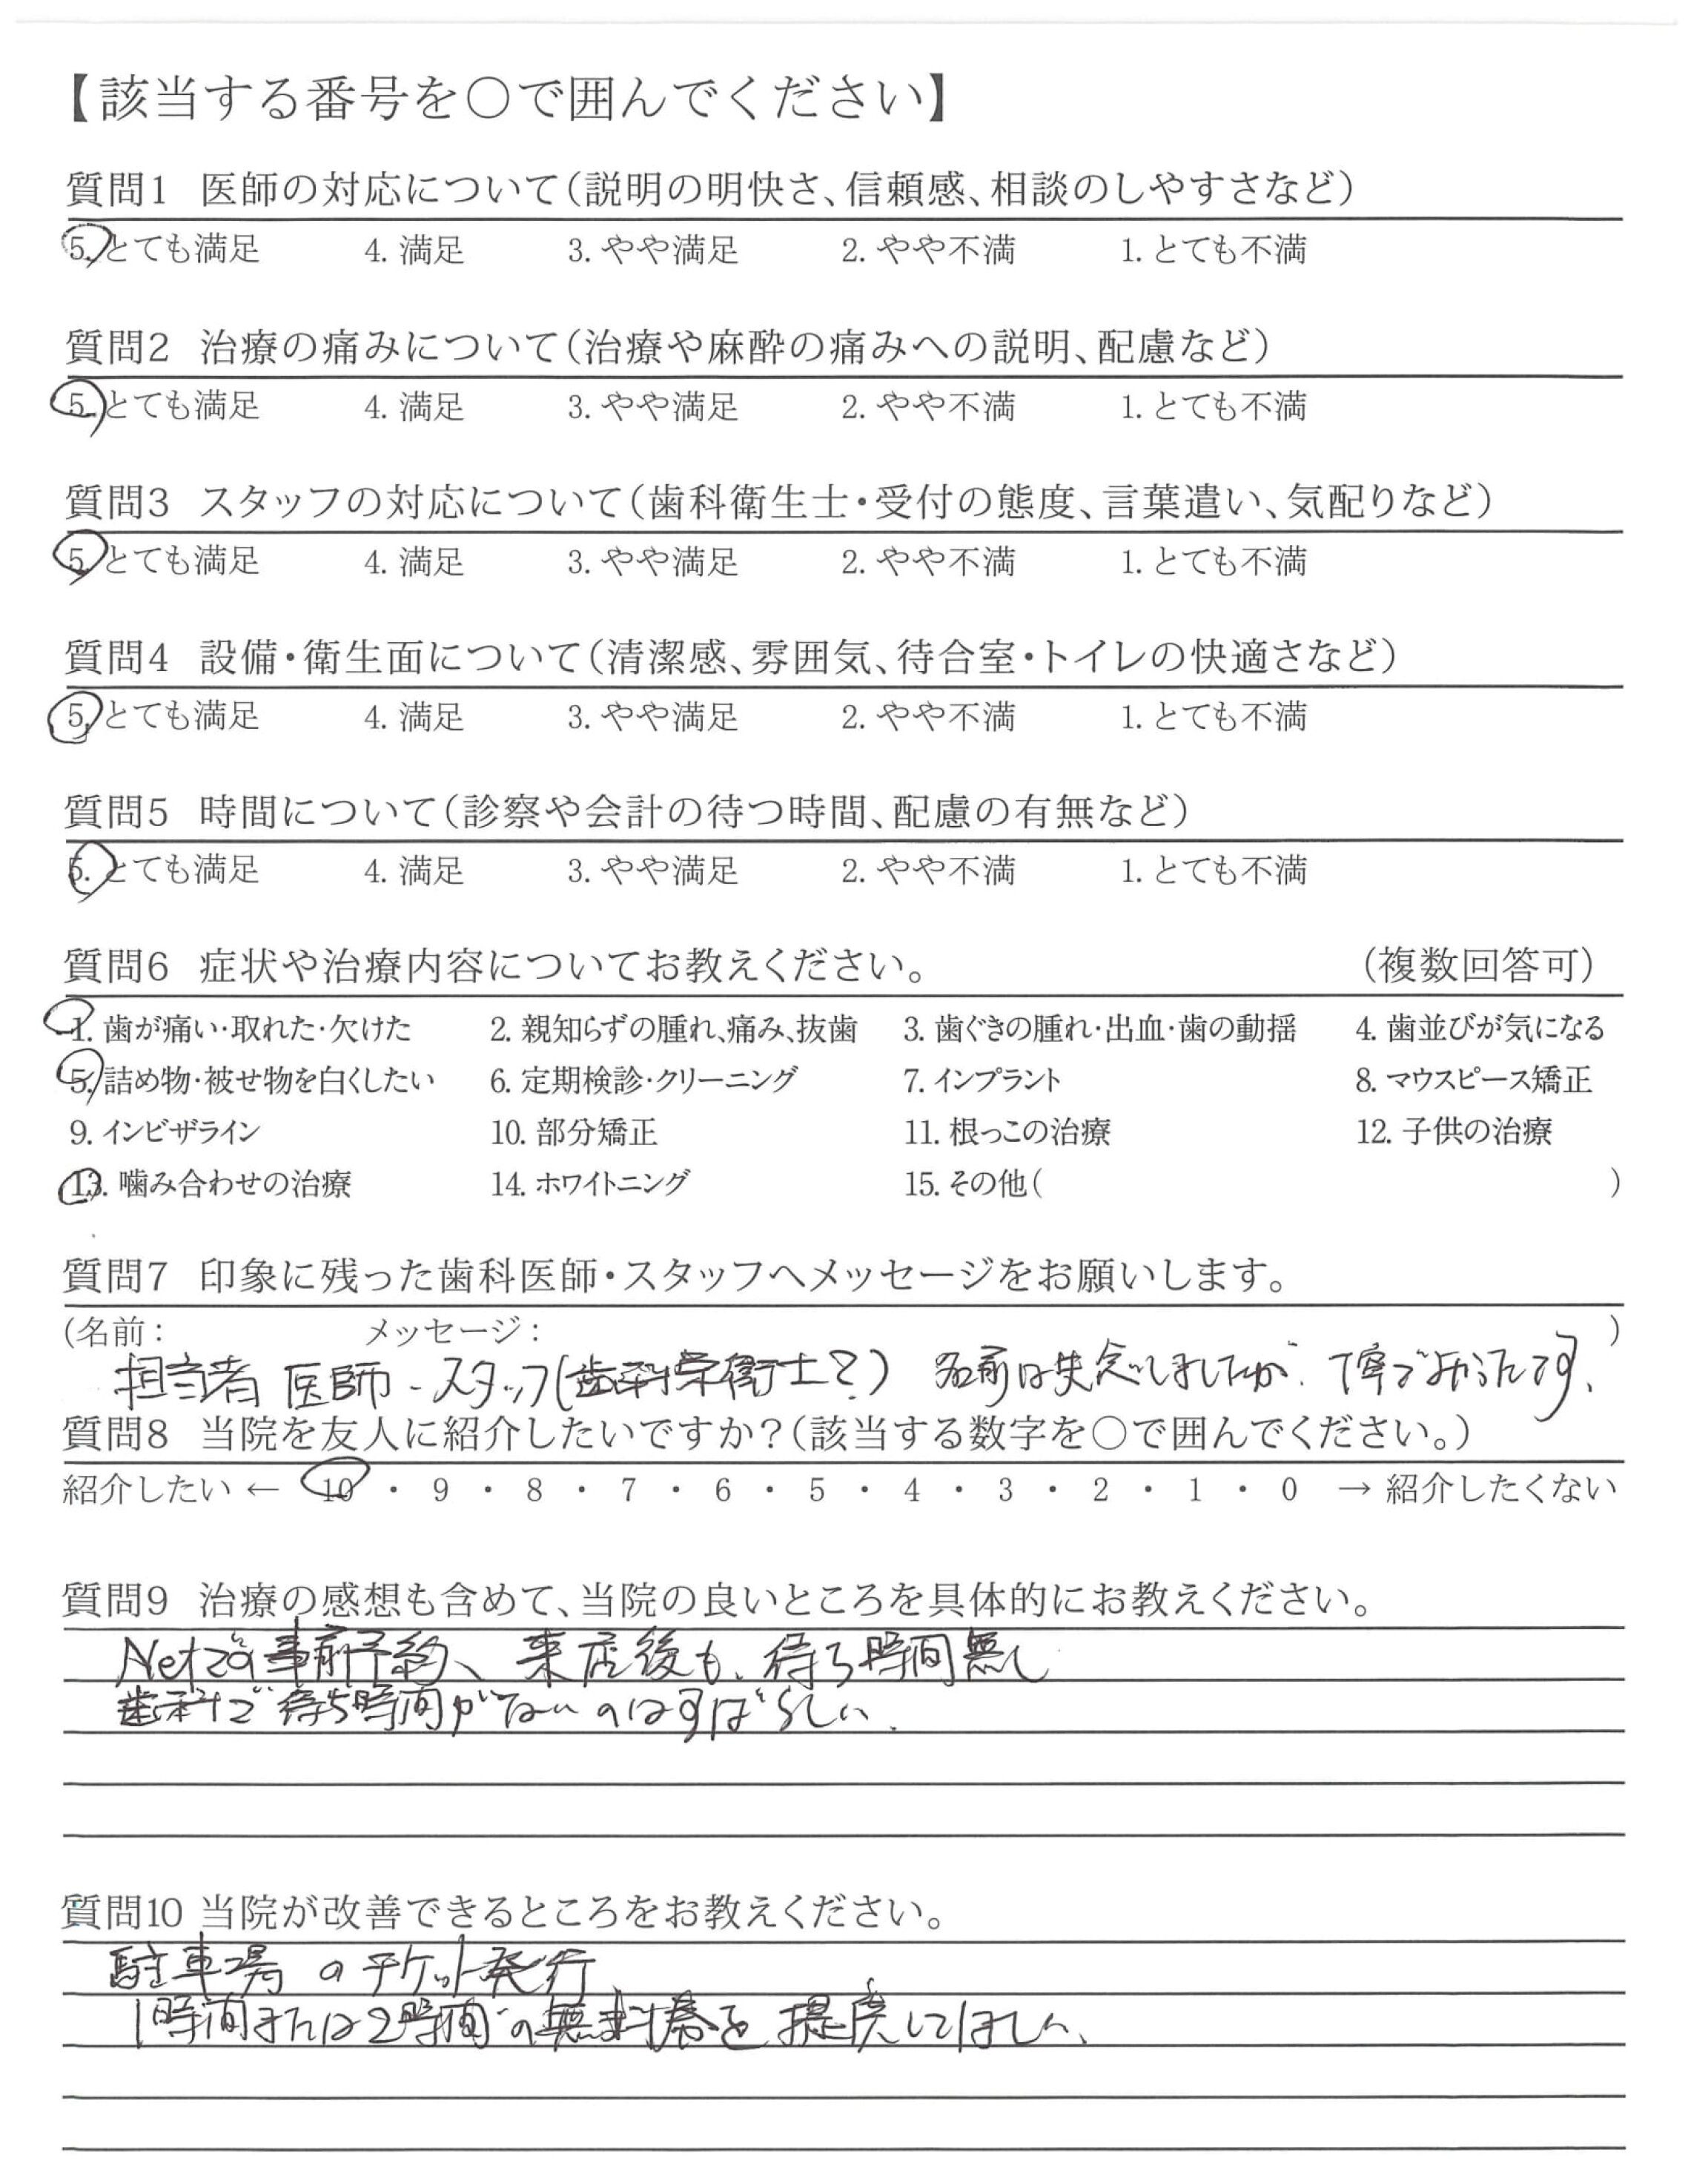 【該当する番号を〇で囲んでください】
質問1 医師の対応について（説明の明快さ、信頼感、相談のしやすさなど）
5. とても満足 4. 満足 3. やや満足 2. やや不満 1. とても不満
質問2 治療の痛みについて（治療や麻酔の痛みへの説明、配慮など）
5. とても満足 4. 満足 3. やや満足 2. やや不満 1. とても不満
質問3 スタッフの対応について（歯科衛生士・受付の態度、言葉遣い、気配りなど）
5. とても満足 4. 満足 3. やや満足 2. やや不満 1. とても不満
質問4 設備・衛生面について（清潔感、雰囲気、待合室・トイレの快適さなど）
5. とても満足 4. 満足 3. やや満足 2. やや不満 1. とても不満
質問5 時間について（診察や会計の待つ時間、配慮の有無など）
5. とても満足 4. 満足 3. やや満足 2. やや不満 1. とても不満
質問6 症状や治療内容についてお教えください。 （複数回答可）
1. 歯が痛い・取れた・欠けた 2. 親知らずの腫れ、痛み、抜歯 3. 歯ぐきの腫れ・出血・歯の動揺 4. 歯並びが気になる
5. 詰め物・被せ物を白くしたい 6. 定期検診・クリーニング 7. インプラント 8. マウスピース矯正
9. インビザライン 10. 部分矯正 11. 根っこの治療 12. 子供の治療
13. 噛み合わせの治療 14. ホワイトニング 15. その他（ ）
質問7 印象に残った歯科医師・スタッフへメッセージをお願いします。
（名前： メッセージ： ）
担当者 医師・スタッフ(歯科 士?) 名前は失念しましたが、丁寧でよかったです、
質問8 当院を友人に紹介したいですか？（該当する数字を〇で囲んでください。）
紹介したい ← 10 ・ 9 ・ 8 ・ 7 ・ 6 ・ 5 ・ 4 ・ 3 ・ 2 ・ 1 ・ 0 → 紹介したくない
質問9 治療の感想も含めて、当院の良いところを具体的にお教えください。
Netでの事前予約、来店後も、待ち時間無し
歯科で待ち時間がないのはすばらしい.
質問10 当院が改善できるところをお教えください。
駐車場のチケット発行
1時間または2時間の無料券を提供してほしい、